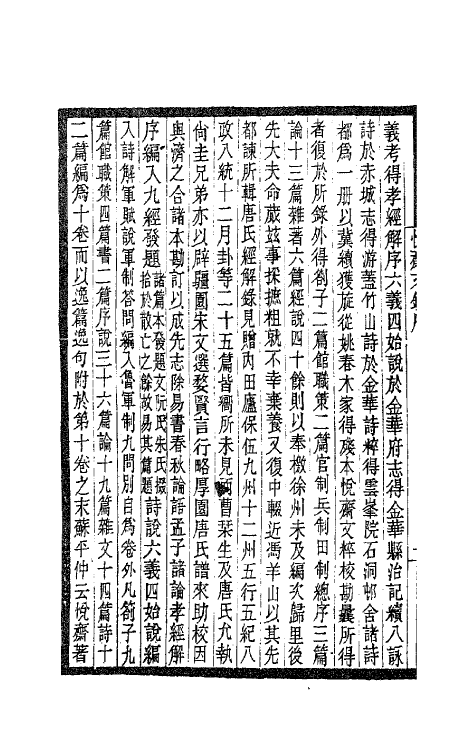 義考得孝經解序六義四始說於金華府志得金華縣治記續八詠
詩於赤城志得游蓋竹山詩於金華詩粹得雲峯院石洞邨舍諸詩
都為一冊以冀續獲旋從姚春木家得殘本悅齋文粹校勘曩所得
者復於所錄外得劄子二篇館職策二篇官制兵制田制總序三篇
論十三篇雜著六篇經說四十餘則以奉檄徐州未及編次歸里後
先大夫命蕆兹事採摭粗就不幸棄養又復中輟近馮羊山以其先
都諫所輯唐氏經解錄見贈内田廬保伍九州十二州五行五紀八
政入統十二月卦等二十五篇皆嚮所未見而曹葉生及唐氏允執
尙圭兄弟亦以辟疆園宋文選婺賢言行略厚園唐氏譜來助校因
與濟之合諸本勘訂以成先志除易書春秋論語孟子諸論孝經解
序編入九經發題諸篇本發題文阮氏朱氏掇拾於散亡之餘故易其篇題詩說六義四始說編
入詩解軍賦說軍制答問編入魯軍制九問別自為卷外凡劄子九
篇館職策四篇書二篇序說三十六篇論十九篇雜文十四篇詩十
二篇編為十卷而以逸篇逸句附於第十卷之末蘇平仲云悅齋著